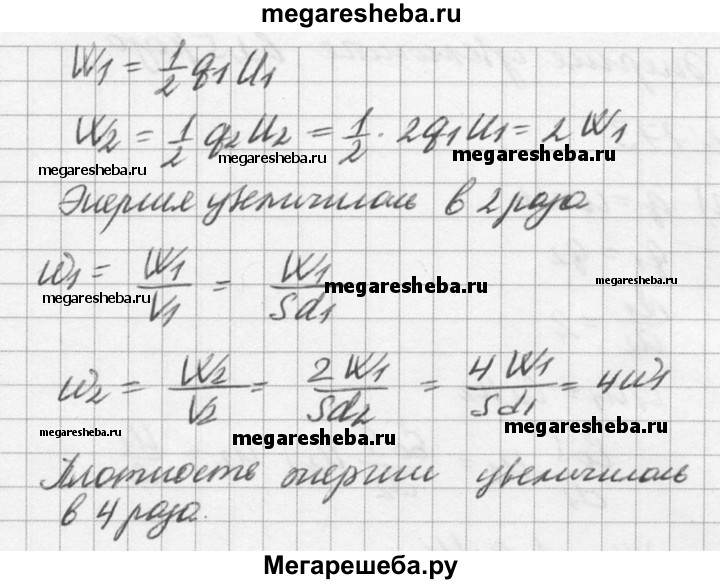 megaresheba.ru
W1 = 1/2 q1 U1
W2 = 1/2 q2 U2 = 1/2 · 2q1 U1 = 2 W1
megaresheba.ru megaresheba.ru megaresheba.ru
Энергия увеличилась в 2 раза
w1 = W1/V1 = W1/Sd1
megaresheba.ru megaresheba.ru megaresheba.ru
w2 = W2/V2 = 2 W1/Sd2 = 4 W1/Sd1 = 4w1
megaresheba.ru megaresheba.ru megaresheba.ru
Плотность энергии увеличилась
в 4 раза.
Мегарешеба.ру